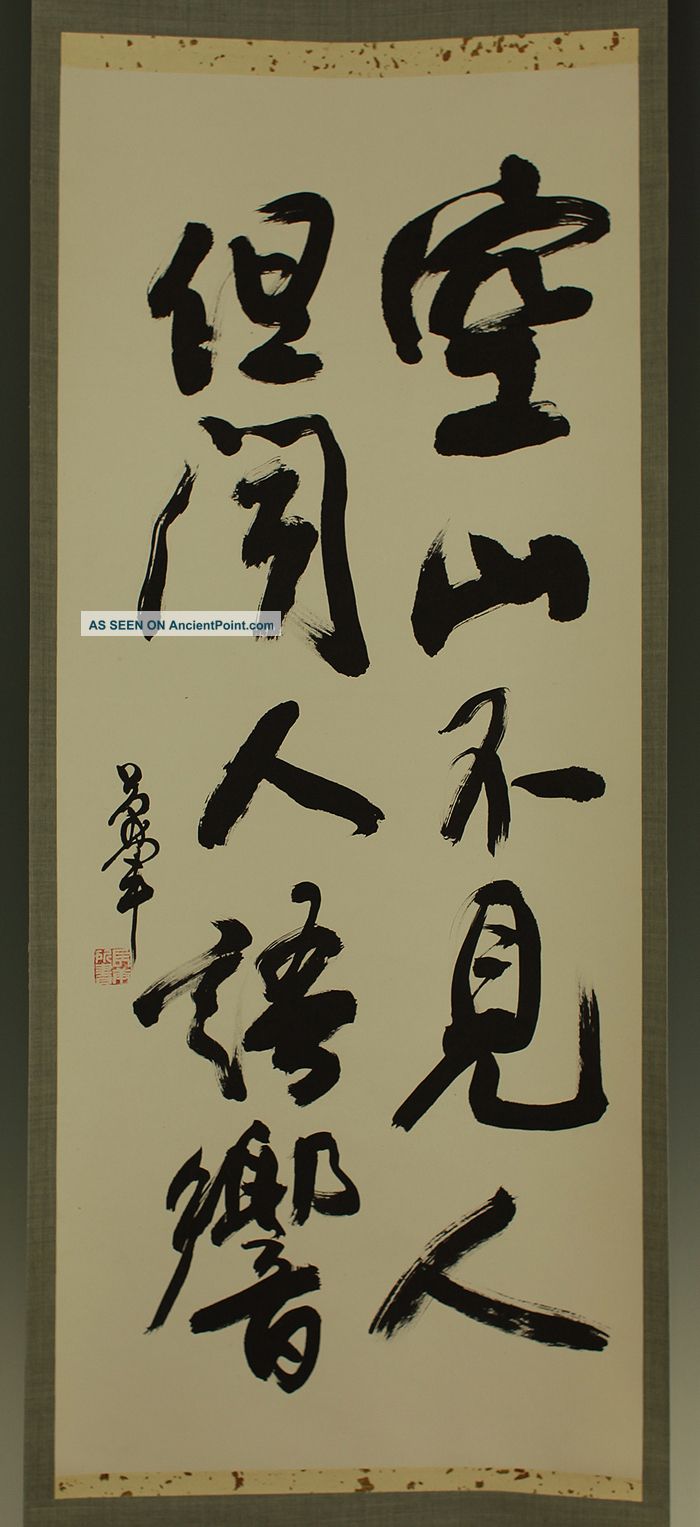 空山不見人
但聞人語響
AS SEEN ON AncientPoint.com